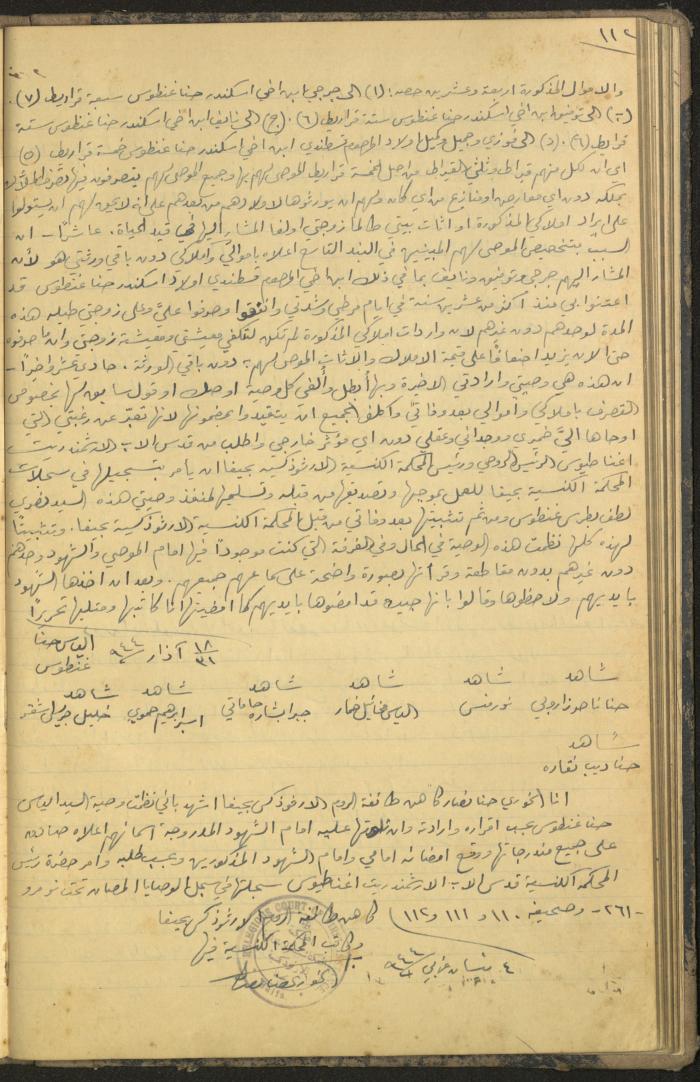 ١١٢
والاموال المذكورة اربعة وعشرين حصه: (١) الى جرجي ابن اخي اسكندر حنا غنطوس سبعة قراريط (٧).
(٢) الى توفيق ابن اخي اسكندر حنا غنطوس ستة قراريط (٦). (ج) الى نايف ابن اخي اسكندر حنا غنطوس ستة
قراريط (٦). (د) الى فوزي وجميل وكميل اولاد المرحوم قسطندي ابن اخي اسكندر حنا غنطوس خمسة قراريط (٥)
اي ان لكل منهم قيراط وثلثي القيراط من اصل الخمسة قراريط الموصى لهم بها وجميع الموصى لهم يتصرفون بها تصرف الملاك
بملكه دون اي معارض او منازع من اي كان ولهم ان يورثوها لاولادهم من بعدهم على انه لا يحق لهم ان يستولوا
على ايراد املاكي المذكورة او اثاث بيتي طالما زوجتي اولغا المشار اليها في قيد الحياة. عاشرًا - ان
السبب بتخصيص الموصى لهم المبينين في البند التاسع اعلاه باموالي واملاكي دون باقي ورثتي هو لأن
المشار اليهم جرجي وتوفيق ونايف بما في ذلك ابن اخي المرحوم قسطندي اولاد اسكندر حنا غنطوس قد
اعتنوا بي منذ اكثر من عشرين سنة في ايام مرضي وشدتي وانفقوا وصرفوا عليَّ وعلى زوجتي طيلة هذه
المدة لوحدهم دون غيرهم لان واردات املاكي المذكورة لم تكن لتكفي معيشتي ومعيشة زوجتي وان ما صرفوه
حتى الان يزيد اضعافًا على قيمة الاملاك والاثاث الموصى لهم به دون باقي الورثة. حادي عشر واخيرًا -
ان هذه هي وصيتي وارادتي الاخيرة وبها أبطل وألغي كل وصية او صك او قول سابق لها بخصوص
التصرف باملاكي واموالي بعد وفاتي واكلف الجميع ان يتقيدوا بمضمونها لانها تعبر عن رغبتي التي
اوحاها اليَّ ضميري ووجداني وعقلي دون اي مؤثر خارجي واطلب من قدس الاب الارشمندريت
اغناطيوس الرئيس الروحي ورئيس المحكمة الكنسية الارثوذكسية بحيفا ان يأمر بتسجيلها في سجلات
المحكمة الكنسية بحيفا للعمل بموجبها وتصديقها من قبله وتسليمها لمنفذ وصيتي هذه السيد نصري
لطف بطرس غنطوس ومن ثم تثبيتها بعد وفاتي من قبل المحكمة الكنسية الارثوذكسية بحيفا. وتثبيتًا
لهذه كلها نظمت هذه الوصية في المحال وفي الغرفة التي كنت موجودًا فيها امام الموصي والشهود وحدهم
دون غيرهم بدون مقاطعة وقرأتها بصورة واضحة على سماعهم جميعهم. وبعد ان اخذها الشهود
بايديهم ولاحظوها وقالوا بانها جيدة قد امضوها بايديهم كما امضيتها انا كاتبها ومتليها تحريرًا
١٨/٣١ آذار ٩٤٤ الياس حنا
غنطوس
شاهد شاهد شاهد شاهد شاهد شاهد
حنا ناصر زاروبي الياس مخائيل خمار جبرا بشاره اسبر ابرهيم حموي خليل جبرايل شقر
شاهد
حنا ديب نقاره
انا الخوري حنا نصار كاهن طائفة الروم الارثوذكس بحيفا اشهد باني نظمت وصية السيد الياس
حنا غنطوس حسب اقراره وارادته وان تلوتها عليه امام الشهود المدروجة اسمائهم اعلاه صادق
على جميع مندرجاتها ووقع امضائه امامي وامام الشهود المذكورين وحسب طلبه وامر حضرة رئيس
المحكمة الكنسية قدس الاب الارشمندريت اغناطيوس سجلتها في سجل الوصايا المصان تحت نومرو
-٢٦١- وصحيفة ١١٠ و ١١١ و ١١٢) كاهن طائفة الروم الارثوذكس بحيفا
وكاتب المحكمة الكنسية فيها
٤ نيسان غربي ٩٤٤ الخوري حنا نصار